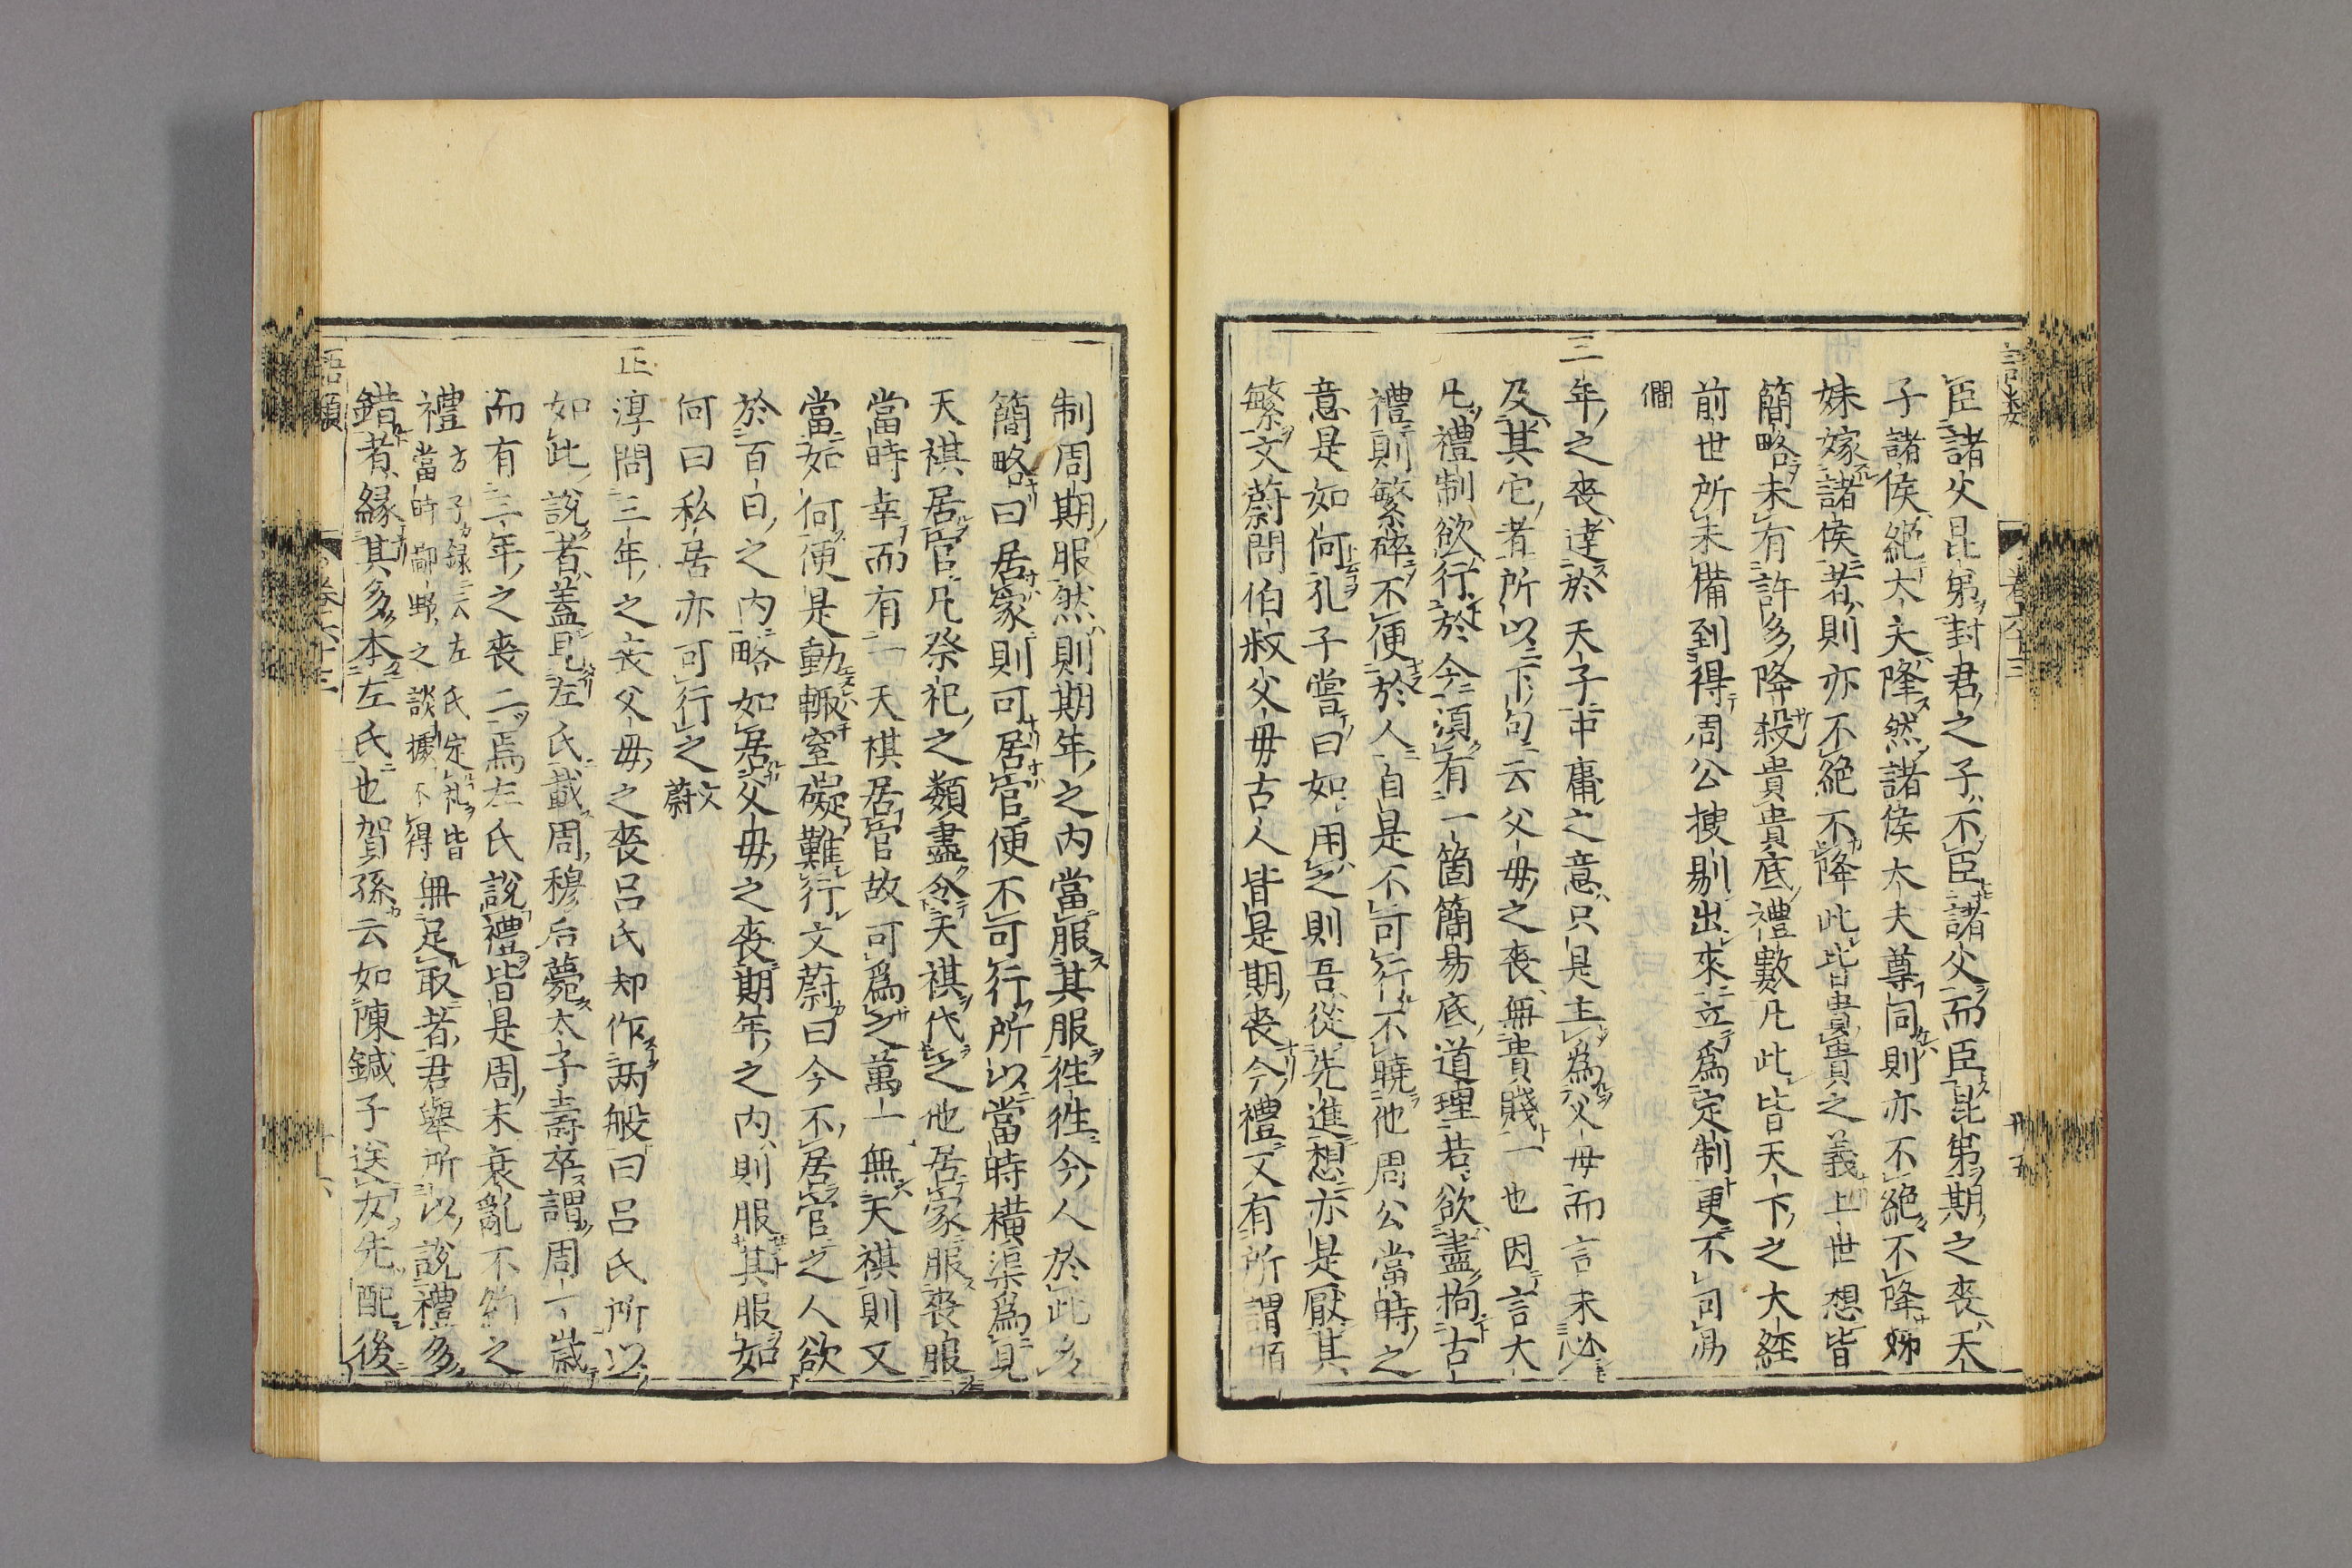 臣諸父昆弟封君之子不臣諸父而臣昆弟期之喪天
子諸侯絶大夫降然諸侯大夫尊同則亦不絶不降姊
妹嫁諸侯者則亦不絶不降此皆貴貴之義上世想皆
簡略未有許多降殺貴貴底禮數凡此皆天下之大經
前世所未備到得周公搜剔出來立爲定制更不可易
僩
三年之喪達於天子中庸之意只是主爲父母而言未必
及其它者所以下句云父母之喪無貴賤一也因言大
凡禮制欲行於今須有一箇簡易底道理若欲盡拘古
禮則繁碎不便於人自是不可行不曉他周公當時之
意是如何孔子嘗曰如用之則吾從先進想亦是厭其
繁文蔚問伯叔父母古人皆是期喪今禮又有所謂百
制周期服然則期年之内當服其服徃徃今人於此多
簡略曰居家則可居官便不可行所以當時横渠爲見
天祺居官凡祭祀之類盡令天祺代之他居家服喪服
當時幸而有一天棋居官故可爲之萬一無天祺則又
當如何便是動輒窒礙難行文蔚曰今不居官之人欲
於百日之内略如居父母之喪期年之内則服其服如
何曰私居亦可行之文蔚
正淳問三年之喪父母之喪吕氏却作兩般曰吕氏所以
如此說者蓋見左氏載周穆后薨太子壽卒謂周一歲
而有三年之喪二焉左氏說禮皆是周末衰亂不經之
禮方子録云左氏定礼皆當時鄙野之談據不得無足取者君舉所以說禮多
錯者縁其多本左氏也賀孫云如陳鍼子送女先配後
語類
卷六十三